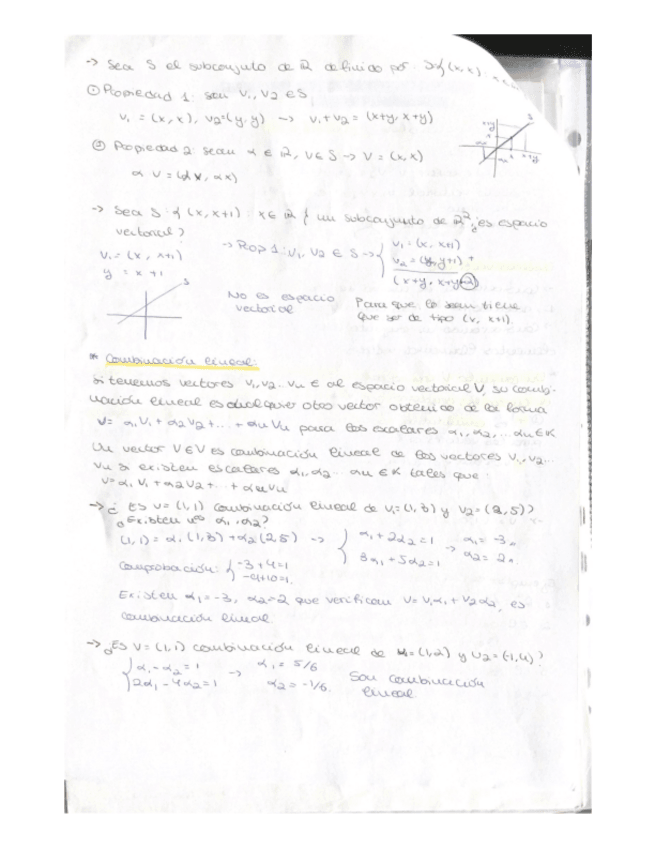 -> Sea S el subconjunto de ℝ definido por S={(x,x):
① Propiedad 1: sean V₁, V₂ ∈ S
V₁ = (x,x), V₂=(y,y) -> V₁+V₂ = (x+y, x+y)
② Propiedad 2: sean α ∈ ℝ, V∈S -> V = (x,x)
α V = (αx, αx)
-> Sea S:{(x,x+1): x∈ℝ} un subconjunto de ℝ² ¿es espacio
vectorial?
-> Prop 1: V₁, V₂ ∈ S -> { V₁ = (x, x+1)
V₂ = (y, y+1) +
(x+y, x+y+2)
V₁ = (x, x+1)
y = x+1
S
No es espacio
vectorial
Para que lo sean tiene
que ser de tipo (x, x+1).
* Combinación lineal:
Si tenemos vectores V₁, V₂... Vn ∈ al espacio vectorial V, su combi-
nación lineal es cualquier otro vector obtenido de la forma
V= α₁V₁ + α₂V₂ + ... + αnVn para los escalares α₁, α₂, ... αn∈K
Un vector V∈V es combinación lineal de los vectores V₁, V₂...
Vn si existen escalares α₁, α₂... αn ∈ K tales que:
V=α₁V₁ + α₂V₂ + ... + αnVn
-> ¿Es V= (1,1) combinación lineal de V₁=(1,3) y V₂= (2,5)?
¿Existen α₁, α₂?
(1,1) = α₁(1,3) + α₂(2,5) -> { α₁ + 2α₂ = 1
3α₁ + 5α₂ = 1
-> α₁ = -3
α₂ = 2
Comprobación: { -3+4=1
-9+10=1.
Existen α₁=-3, α₂=2 que verifican V= V₁α₁ + V₂α₂, es
combinación lineal.
-> ¿Es V= (1,1) combinación lineal de V₁=(1,2) y V₂=(-1,4)?
{ α₁ - α₂ = 1
2α₁ - 4α₂ = 1
-> α₁ = 5/6
α₂ = -1/6.
Son combinación
lineal